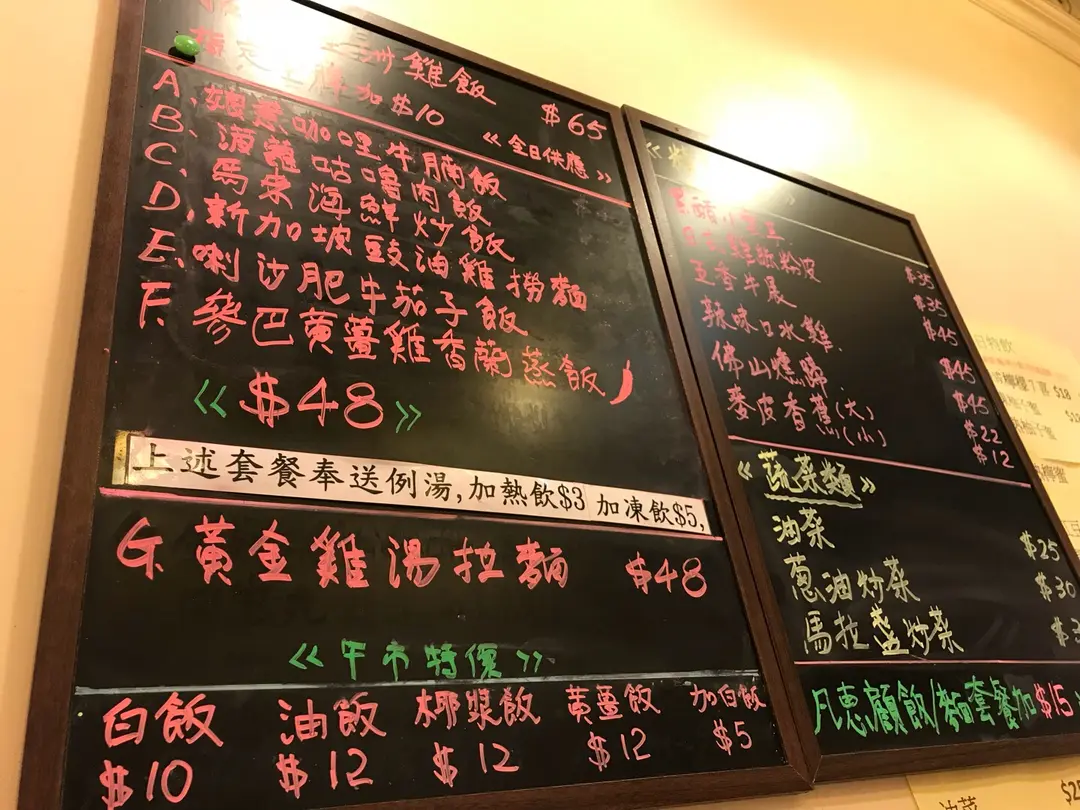 指定 加$10
州雞飯 $65
<<全日供應>>
A、咖喱牛腩飯
B、菠蘿咕嚕肉飯
C、馬來海鮮炒飯
D、新加坡豉油雞撈麵
E、喇沙肥牛茄子飯
F、參巴黃薑雞香蘭蒸飯
<<$48>>
上述套餐奉送例湯,加熱飲$3 加凍飲$5,
G、黃金雞湯拉麵 $48
<<午市特價>>
白飯 油飯 椰漿飯 黃薑飯 加白飯
$10 $12 $12 $12 $5
$35
粉皮 $35
五香牛展 $45
辣味口水雞 $45
佛山燻蹄 $45
麥皮香蕉(大) $22
(小) $12
<<蔬菜類>>
油菜 $25
蔥油炒菜 $30
馬拉盞炒菜
凡惠顧飯/麵套餐加$15
$18
油菜